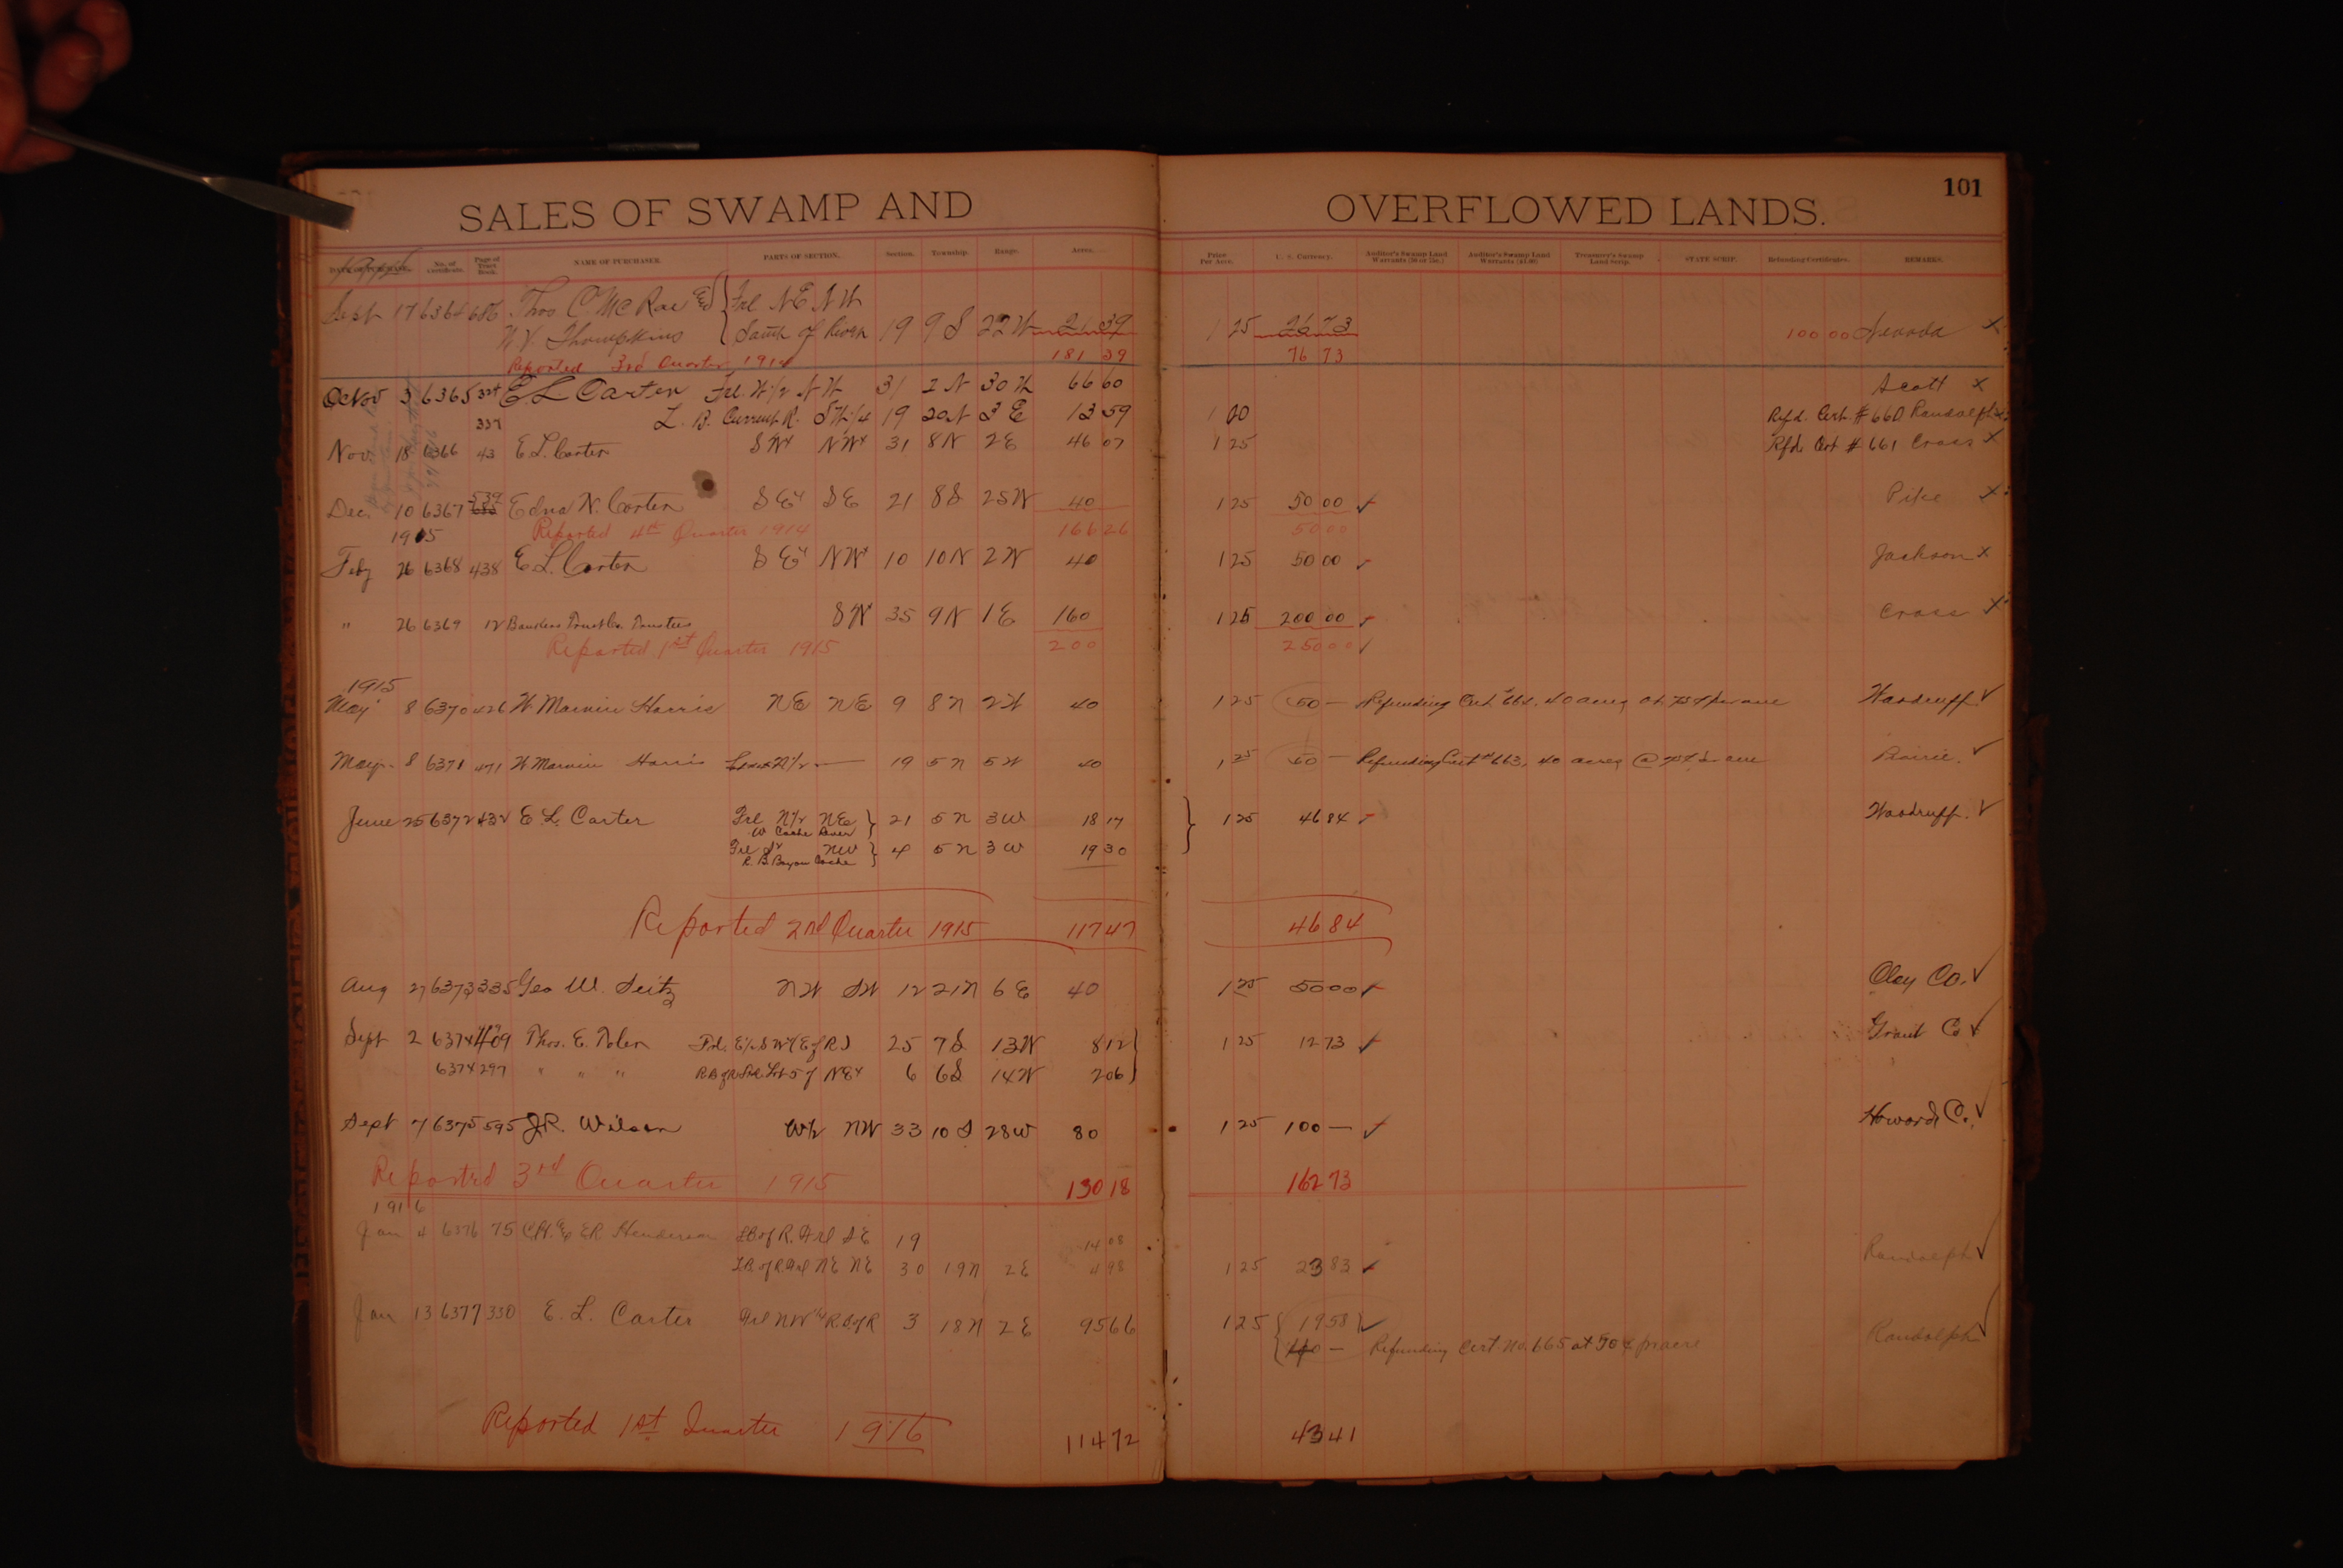 SALES OF SWAMP AND OVERFLOWED LANDS. 101
DATE OF PURCHASE. No. of Certificate. Page of Tract Book. NAME OF PURCHASER. PARTS OF SECTION. Section. Township. Range. Acres. Price Per Acre. U. S. Currency. Auditor's Swamp Land Warrants Auditor's Swamp Land Warrants Treasurer's Swamp Land Scrip. STATE SCRIP. Refunding Certificates. REMARKS.
Sept 17 6364 686 Thos. C. McRae & Frl NE NW
W. V. Thompkins South of River 19 9S 22W 21 39 1 25 26 73 100 00 Nevada X
Reported 3rd Quarter 1914 181 39 76 73
Nov 3 6365 E L Carter Frl. W 1/2 NW 31 2N 30W 66 60 Scott X
337 L. B. Current R. SW 1/4 19 20N 3E 13 59 1 00 Refd. Cert. # 660 Randolph X
Nov. 18 6366 43 E L. Carter SW4 NW4 31 8N 2E 46 07 1 25 Rfd. Cert # 661 Cross X
Dec. 10 6367 539 Edna N. Carter SE4 SE 21 8S 25W 40 1 25 50 00 ✓ Pike X
1915 Reported 4th Quarter 1914 166 26 50 00
Feby 26 6368 438 E L. Carter SE4 NW4 10 10N 2W 40 1 25 50 00 ✓ Jackson X
" 26 6369 12 Bankers Trust Co. Trustees SW4 35 9N 1E 160 1 25 200 00 ✓ Cross X
Reported 1st Quarter 1915 200 250 00 ✓
1915
May 8 6370 426 W Marvin Harris NE NE 9 8N 2W 40 1 25 50 — Refunding Cert. 40 acres at 75¢ per acre Woodruff ✓
May 8 6371 471 W Marvin Harris N/2 — 19 5N 5W 40 1 25 50 — Refunding Cert # 663, 40 acres @ 75¢ per acre Prairie. ✓
June 25 6372 432 E L. Carter Frl N/2 NE } 21 5N 3W 18 17 } 1 25 46 84 ✓ Woodruff. ✓
W Cache River
Frl NW } 4 5N 3W 19 30
R. B. Bayou Cache
Reported 2nd Quarter 1915 117 47 46 84
Aug 27 6373 335 Geo W. Seitz NW SW 12 21N 6E 40 1 25 50 00 ✓ Clay Co. ✓
Sept 2 6374 409 Thos. E. Toler Frl. E/2 SW4 (E of R) 25 7S 13W 8 12 } 1 25 12 73 ✓ Grant Co ✓
6374 297 " " " Lot 5 of NE4 6 6S 14W 2 06 }
Sept 7 6375 595 J. R. Wilson W/2 NW 33 10S 28W 80 1 25 100 — ✓ Howard Co. ✓
Reported 3rd Quarter 1915 130 18 162 73
1916
Jan 4 6376 75 C.H. & E R Henderson LB of R. Frl SE 19 14 08
L.B. of R. Frl NE NE 30 19N 2E 4 98 1 25 23 83 ✓ Randolph ✓
Jan 13 6377 330 E. L. Carter Frl NW 4 R.S of R 3 18N 2E 95 66 1 25 { 19 58 } ✓
— Refunding Cert No. 665 at 50¢ per acre Randolph ✓
Reported 1st Quarter 1916 114 72 43 41